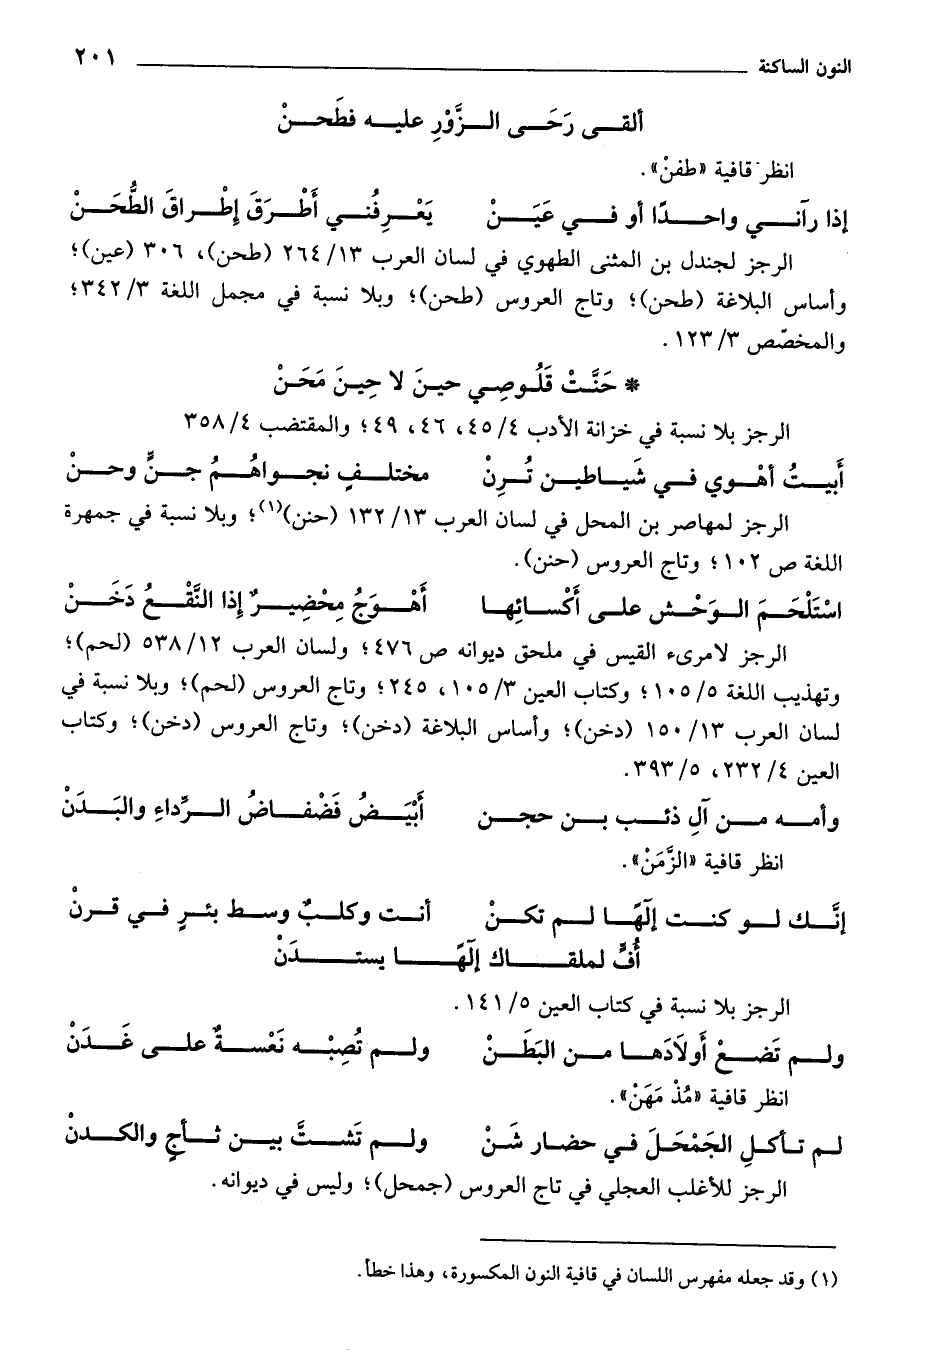 النون الساكنة ٢٠١
ألقـى رَحَـى الـزَّوْرِ عليـه فطَحـنْ
انظر قافية «طفنْ».
إذا رآنـي واحـدًا أو فـي عَيَـنْ يَعْـرِفُنـي أَطْـرَقَ إطْـراقَ الطُّحَـنْ
الرجز لجندل بن المثنى الطهوي في لسان العرب ١٣/ ٢٦٤ (طحن)، ٣٠٦ (عين)؛
وأساس البلاغة (طحن)؛ وتاج العروس (طحن)؛ وبلا نسبة في مجمل اللغة ٣/ ٣٤٢؛
والمخصّص ٣/ ١٢٣.
* حَنَّتْ قَلُوصِي حينَ لا حِينَ مَحَنْ
الرجز بلا نسبة في خزانة الأدب ٤/ ٤٥، ٤٦، ٤٩؛ والمقتضب ٤/ ٣٥٨
أَبيـتُ أهْـوي فـي شَيـاطيـن تُـرِنْ مختلـفٍ نجـواهُـمُ جـنٍّ وحـنْ
الرجز لمهاصر بن المحل في لسان العرب ١٣/ ١٣٢ (حنن)(١)؛ وبلا نسبة في جمهرة
اللغة ص ١٠٢؛ وتاج العروس (حنن).
اسْتَلْحَـمَ الـوَحْـش علـى أَكْسـائِهـا أَهْـوَجُ مِحْضِيـرٌ إذا النَّقْـعُ دَخَـنْ
الرجز لامرىء القيس في ملحق ديوانه ص ٤٧٦؛ ولسان العرب ١٢/ ٥٣٨ (لحم)؛
وتهذيب اللغة ٥/ ١٠٥؛ وكتاب العين ٣/ ١٠٥، ٢٤٥؛ وتاج العروس (لحم)؛ وبلا نسبة في
لسان العرب ١٣/ ١٥٠ (دخن)؛ وأساس البلاغة (دخن)؛ وتاج العروس (دخن)؛ وكتاب
العين ٤/ ٢٣٢، ٥/ ٣٩٣.
وأمـه مـن آلِ ذئـب بـن حجـن أَبْيَـضُ فَضْفـاضُ الـرِّداءِ والبَـدَنْ
انظر قافية «الزَّمَنْ».
إنَّـك لـو كنـت إلَهًـا لـم تكـنْ أنـت وكلـبٌ وسـط بئـرٍ فـي قـرنْ
أُفٍّ لملقـاك إلَهًـا يستـدَنْ
الرجز بلا نسبة في كتاب العين ٥/ ١٤١.
ولـم تَضـعْ أَولاَدَهـا مـن البَطَـنْ ولـم تُصِبْـه نَعْسـةٌ علـى غَـدَنْ
انظر قافية «مُذْ مَهَنْ».
لـم تـأكـلِ الجَمْحَلَ فـي حضـار شَـنْ ولـم تَشـتَّ بيـن ثـأجٍ والكـدنْ
الرجز للأغلب العجلي في تاج العروس (جمحل)؛ وليس في ديوانه.
(١) وقد جعله مفهرس اللسان في قافية النون المكسورة، وهذا خطأ.